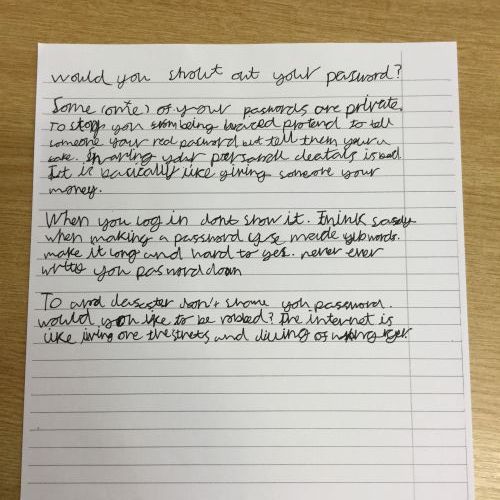 would you shout out your password?
Some of your passwords are private.
To stop you being pretend to tell
someone your real password but tell them your a
Sharing your deatals is bad
It is basically like giving someone your
money.
When you log in dont show it. Think
when making a password use made words.
make it long and hard to never ever
write you password down
To don't you password.
would you like to be robbed? The internet is
like living one the streets and of